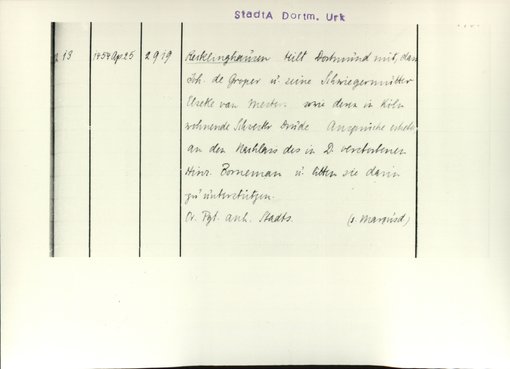 StadtA Dortm. Urk
213 1454 Apr. 25 2919 Recklinghausen teilt Dortmund mit, dass
Joh. de Groper u seine Schwiegermutter
Elseke van Mesten sowie deren in Köln
wohnende Schwester Drude Ansprüche erheben
an den Nachlass des in D. verstorbenen
Hinr. Borneman u bitten sie darin
zu unterstützen.
Or. Pgt. anh. Stadts.